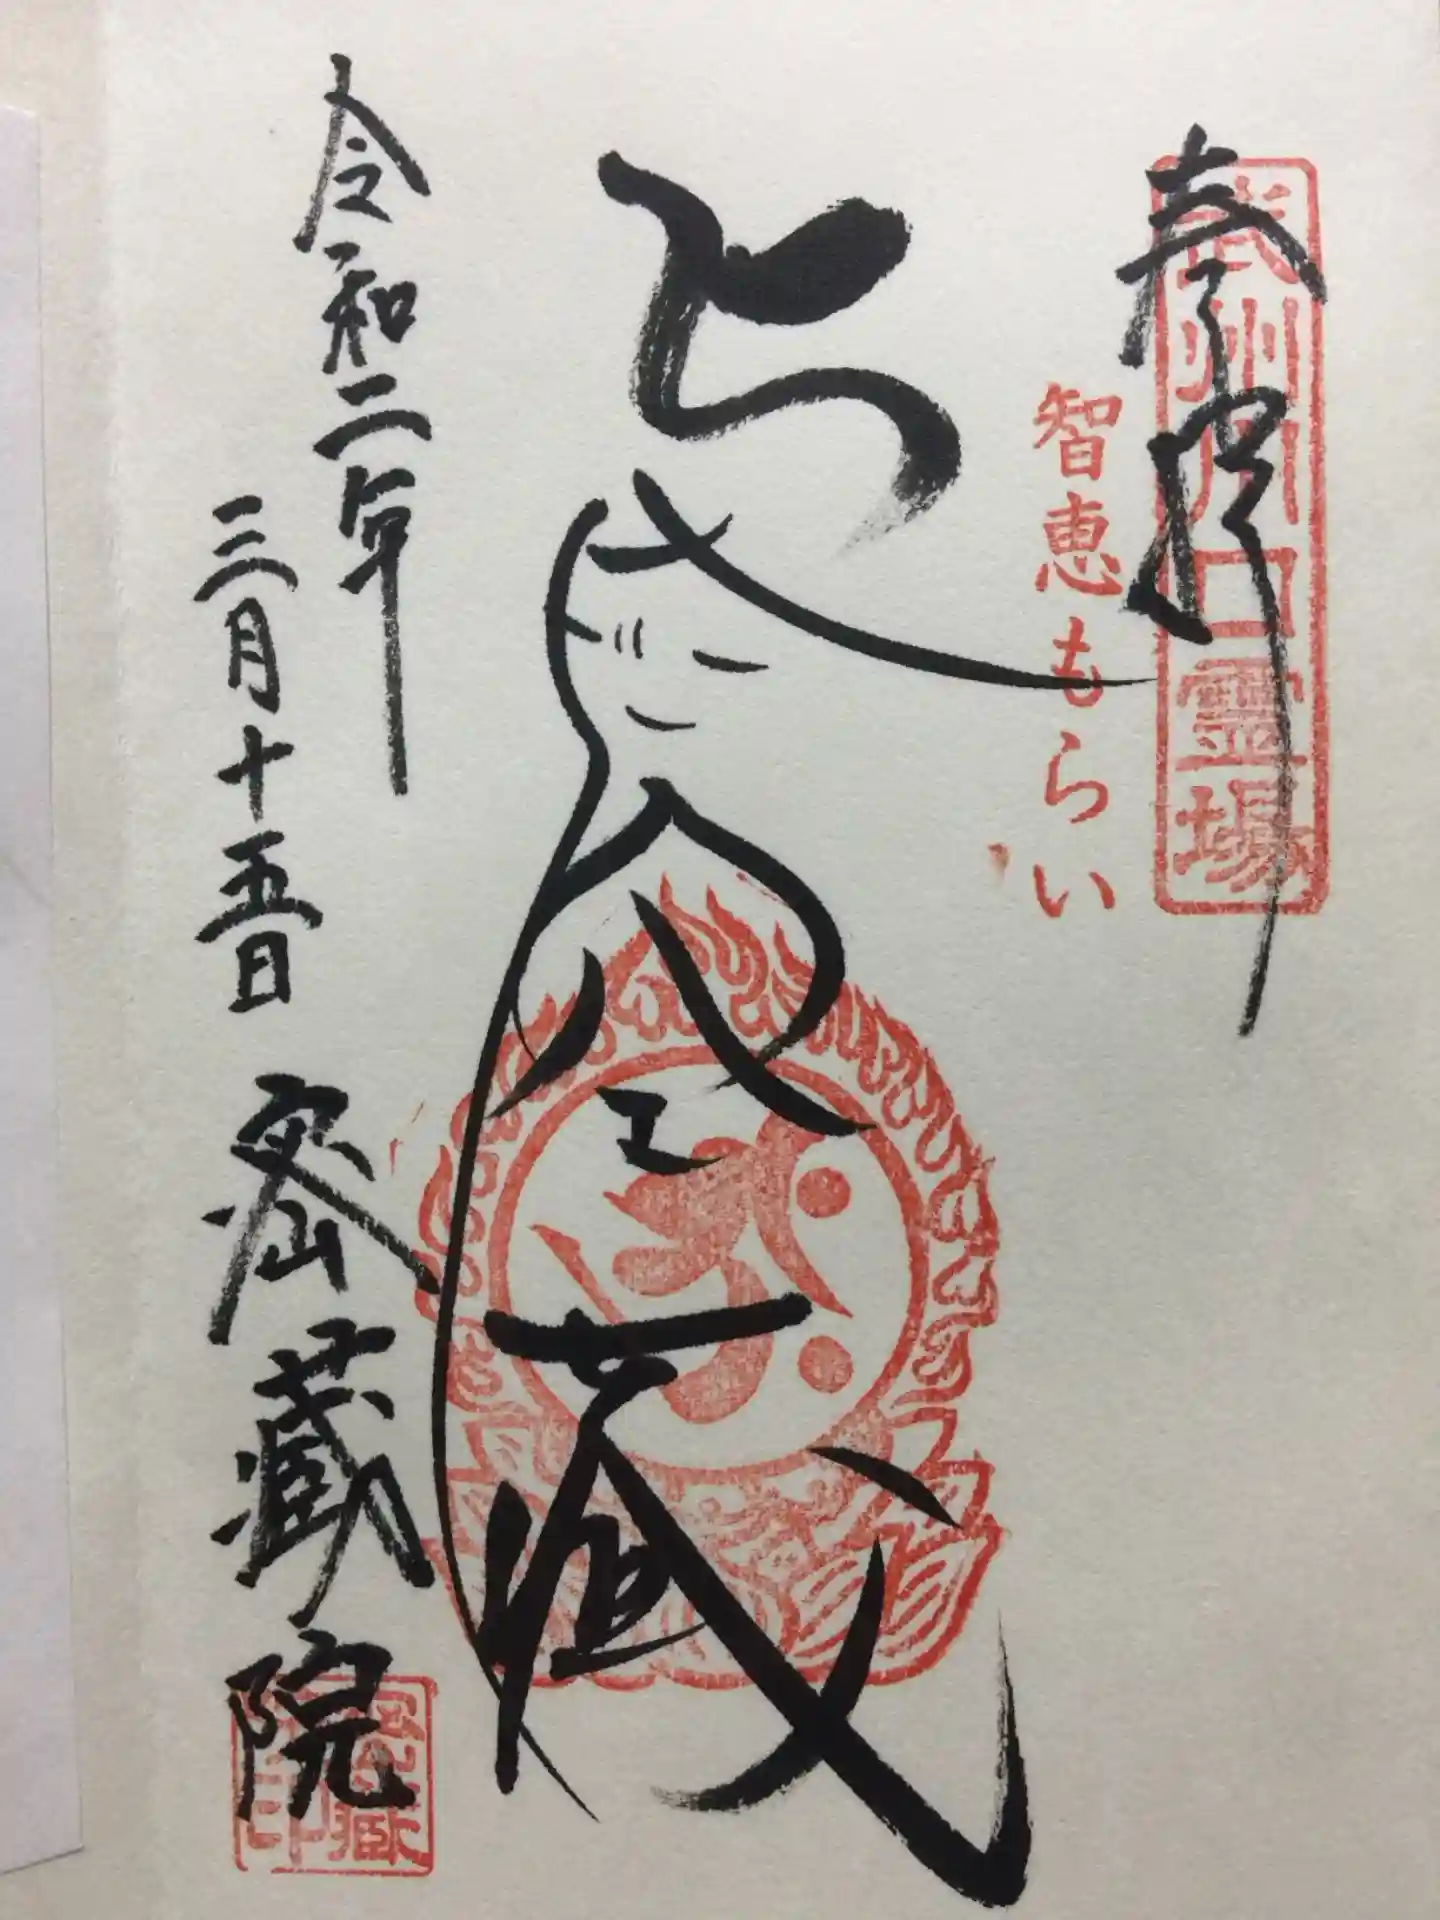 奉拝
武州川口霊場
智恵もらい
虚空蔵
令和二年
三月十五日
密蔵院
密蔵院印